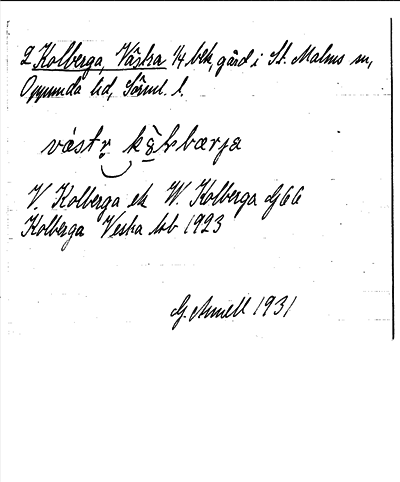 2 Kolberga, Västra 1/4 blk, gård i St. Malms sn,
Oppunda hd, Söml. l.
västr kålbærja
V. Kolberga ek W. Kolberga Gj66
Kolberga Vestra kb 1923
G. Annell 1931